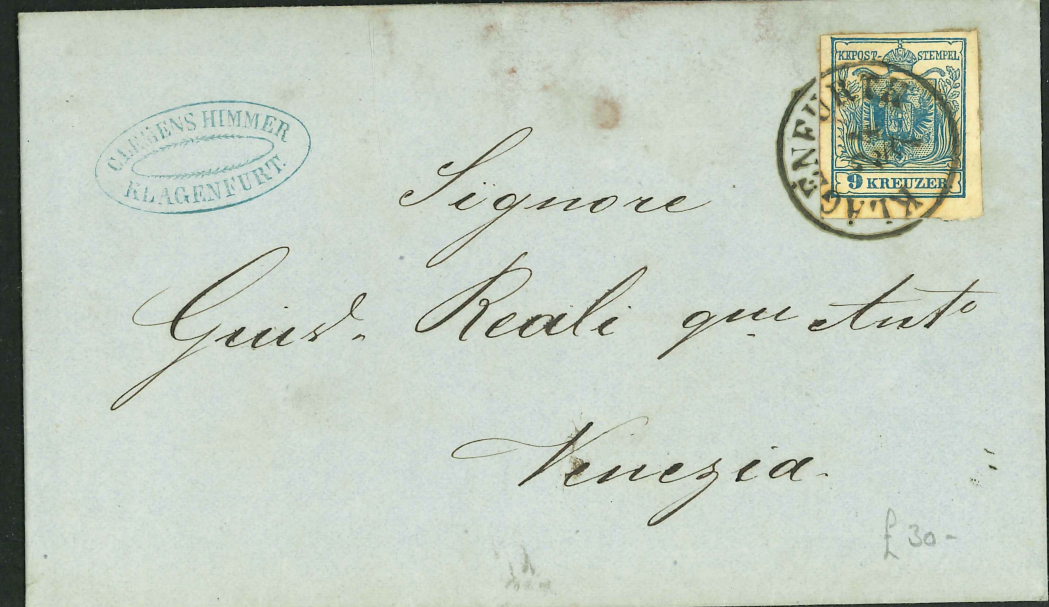 CLEMENS HIMMER
KLAGENFURT.
KKPOST-STEMPEL
9 KREUZER
KLAGENFURTH
Signore
Gius. Reali qm Anto
Venezia.
£30-